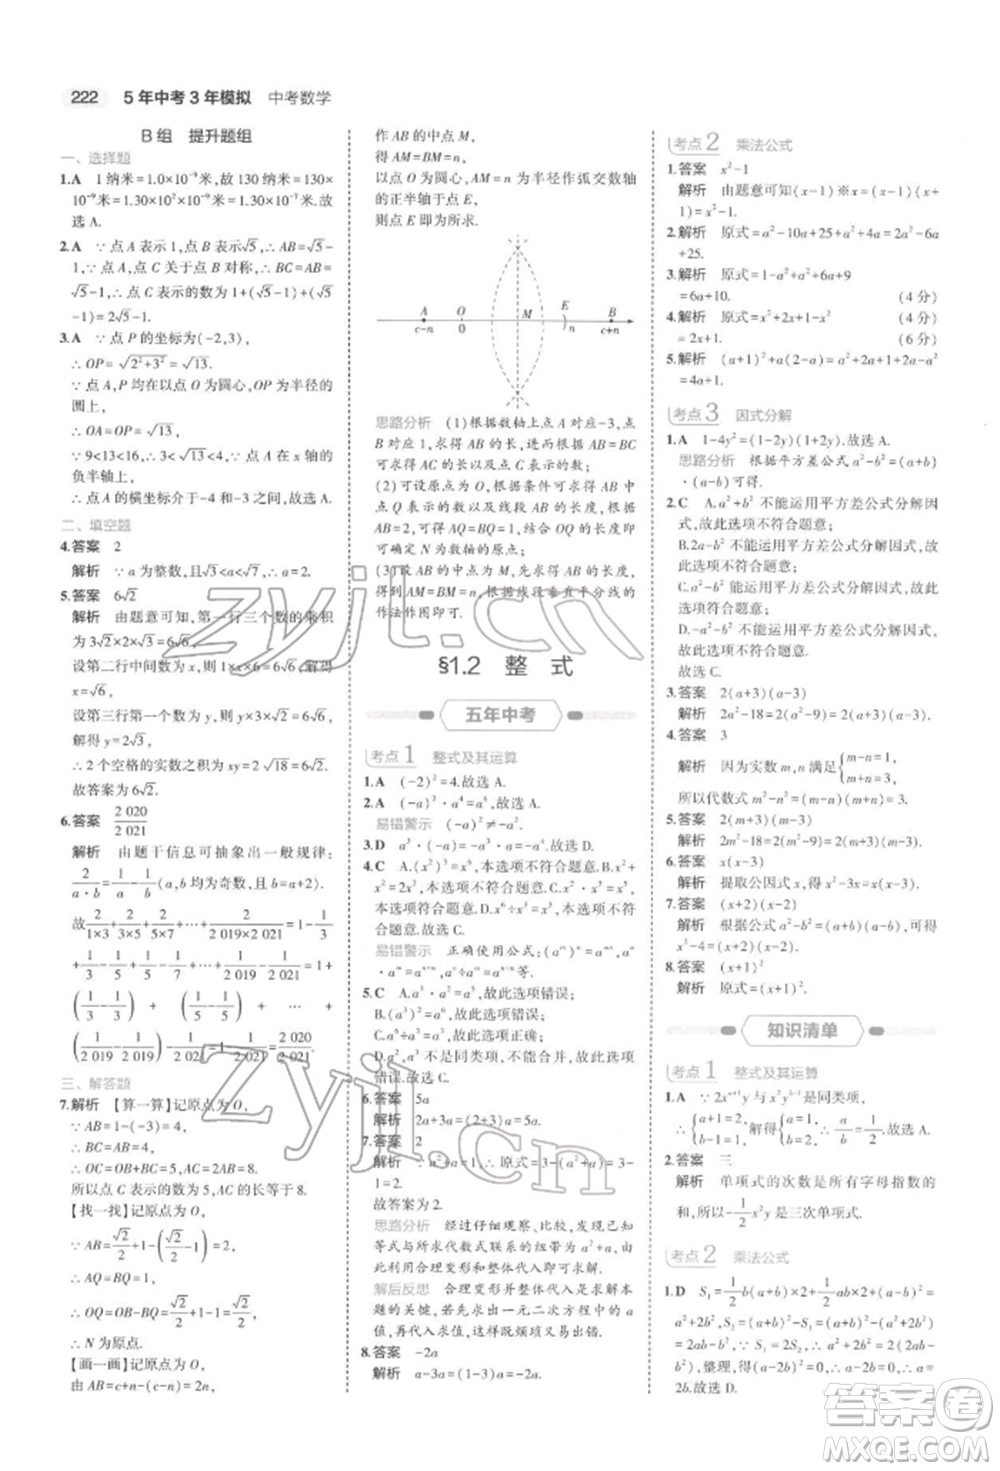 222 5年中考3年模拟 中考数学
B组 提升题组
一、选择题
1.A 1纳米=1.0×10⁻⁹米,故130纳米=130×
10⁻⁹米=1.30×10²×10⁻⁹米=1.30×10⁻⁷米.故
选A.
2.A ∵点A表示1,点B表示√5,∴AB=√5-1,
∵点A,点C关于点B对称,∴BC=AB=
√5-1,∴点C表示的数为1+(√5-1)+(√5
-1)=2√5-1.
3.A ∵点P的坐标为(-2,3),
∴OP=√(2²+3²)=√13.
∵点A,P均在以点O为圆心,以OP为半径的
圆上,
∴OA=OP=√13,
∵9<13<16,∴3<√13<4,∵点A在x轴的
负半轴上,
∴点A的横坐标介于-4和-3之间,故选A.
二、填空题
4.答案 2
解析 ∵a为整数,且√3<a<√7,∴a=2.
5.答案 6√2
解析 由题意可知,第一行三个数的乘积
为3√2×2×√3=6√6,
设第二行中间数为x,则1×x×6=6√6,解得
x=√6,
设第三行第一个数为y,则y×3×√2=6√6,
解得y=2√3,
∴2个空格的实数之积为xy=2√18=6√2.
故答案为6√2.
6.答案 2 020/2 021
解析 由题干信息可抽象出一般规律:
2/(a·b)=1/a-1/b(a,b均为奇数,且b=a+2).
故2/(1×3)+2/(3×5)+2/(5×7)+…+2/(2 019×2 021)=1-1/3
+1/3-1/5+1/5-1/7+…+1/2 019-1/2 021=1+
(1/3-1/3)+(1/5-1/5)+…+
(1/2 019-1/2 019)-1/2 021=1-1/2 021=2 020/2 021.
三、解答题
7.解析 【算一算】记原点为O,
∵AB=1-(-3)=4,
∴BC=AB=4,
∴OC=OB+BC=5,AC=2AB=8.
所以点C表示的数为5,AC的长等于8.
【找一找】记原点为O,
∵AB=√2/2+1-(√2/2-1)=2,
∴AQ=BQ=1,
∴OQ=OB-BQ=√2/2+1-1=√2/2,
∴N为原点.
【画一画】记原点为O,
由AB=c+n-(c-n)=2n,
作AB的中点M,
得AM=BM=n,
以点O为圆心,AM=n为半径作弧交数轴
的正半轴于点E,
则点E即为所求.
A 0 M E B
c-n 0 c+n
思路分析 (1)根据数轴上点A对应-3,点B
对应1,求得AB的长,进而根据AB=BC
可求得AC的长以及点C表示的数;
(2)可设原点为O,根据条件可求得AB中
点Q表示的数以及AQ=BQ=1,结合OQ的长度,即可
确定N为数轴的原点;
(3)设AB的中点为M,先求得AB的长度,
得到AM=BM=n,根据线段垂直平分线的
作法作图即可.
§1.2 整 式
五年中考
考点1 整式及其运算
1.A (-2)²=4.故选A.
2.A (-a)²·a⁴=a⁶,故选A.
易错警示 (-a)²≠-a².
3.D a³·a²=a⁵.故选D.
4.C A.(x²)³=x⁶,本选项不符合题意;B.x²+
易错警示 正确使用公式:(aᵐ)ⁿ=aᵐⁿ,aᵐ·
aⁿ=aᵐ⁺ⁿ,aᵐ÷aⁿ=aᵐ⁻ⁿ.
6.答案 5a
解析 2a+3a=(2+3)a=5a.
7.答案 2
解析 ∵a²+a=1,∴原式=3-(a²+a)=3-
1=2.
故答案为2.
思路分析 经过仔细观察、比较,发现已
知与所求代数式联系的纽带为"a²+a".
解后反思 合理变形并整体代入是解本
题的关键,若先求出一元二次方程的a
值,再代入求值,则更烦琐而且易出错.
8.答案 -2a
解析 a-3a=(1-3)a=-2a.
考点2 乘法公式
1.答案 x²-1
解析 由题意可知(x-1)※x=(x-1)(x+
1)=x²-1.
2.解析 原式=a²-10a+25+a²+4a=2a²-6a
+25.
3.解析 原式=1-a²+a²+6a+9
=6a+10. (4分)
4.解析 原式=x²+2x+1-x² (4分)
=2x+1. (6分)
5.解析 (a+1)²+a(2-a)=a²+2a+1+2a-a²=
4a+1.
考点3 因式分解
1.A 1-4y²=(1-2y)(1+2y).故选A.
思路分析 根据平方差公式a²-b²=(a-b)
·(a+b)求解即可.
2.C A.a²+b²不能运用平方差公式分解因
式,故此选项不符合题意;
B.2a-b²不能运用平方差公式分解因式,
故此选项不符合题意;
C.a²-b²能运用平方差公式分解因式,故此
选项符合题意;
D.-a²-b²不能运用平方差公式分解因式,
故此选项不符合题意.
故选C.
3.答案 2(a+3)(a-3)
解析 2a²-18=2(a²-9)=2(a+3)(a-3).
4.答案 3
解析 因为实数m,n满足{m-n=1,
m+n=3,
所以代数式m²-n²=(m-n)(m+n)=3.
5.答案 2(m+3)(m-3)
解析 2m²-18=2(m²-9)=2(m+3)(m-3).
6.答案 x(x-3)
解析 提取公因式x,得x²-3x=x(x-3).
7.答案 (x+2)(x-2)
解析 根据公式a²-b²=(a+b)(a-b)知,
x²-4=(x+2)(x-2).
8.答案 (x+1)²
解析 原式=x²+2x+1=(x+1)².
知识清单
考点1 整式及其运算
1.A ∵2xᵃ⁺¹y与x²yᵇ⁻¹是同类项,
∴{a+1=2,
b-1=1,
解得{a=1,
b=2,
∴a/b=1/2.故选A.
2.答案 三
解析 单项式的次数是所有字母指数的
和,所以-1/2x²y是三次单项式.
考点2 乘法公式
1.D S₁=1/2b(a+b)×2+1/2ab×2+(a-b)²=
a²+2b²,S₂=(a+b)²-S₁=(a+b)²-(a²+2b²)
=2ab-b²,∵S₁=2S₂,∴a²+2b²=2(2ab
-b²),整理,得(a-2b)²=0,∴a-2b=0,∴a=
2b.故选D.
zyjl.cn
zyjl.cn
答案圈
MXQE.COM